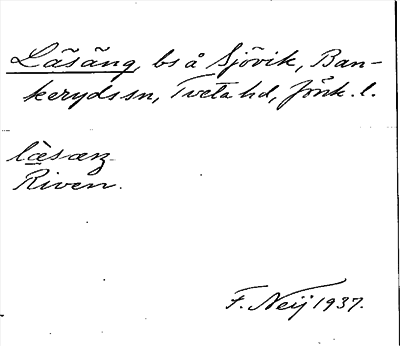 Läsäng, bs å Sjövik, Ban-
kerydssn, Tveta hd, Jönk. l.
læ̀saŋ.
Riven.
F. Neij 1937.